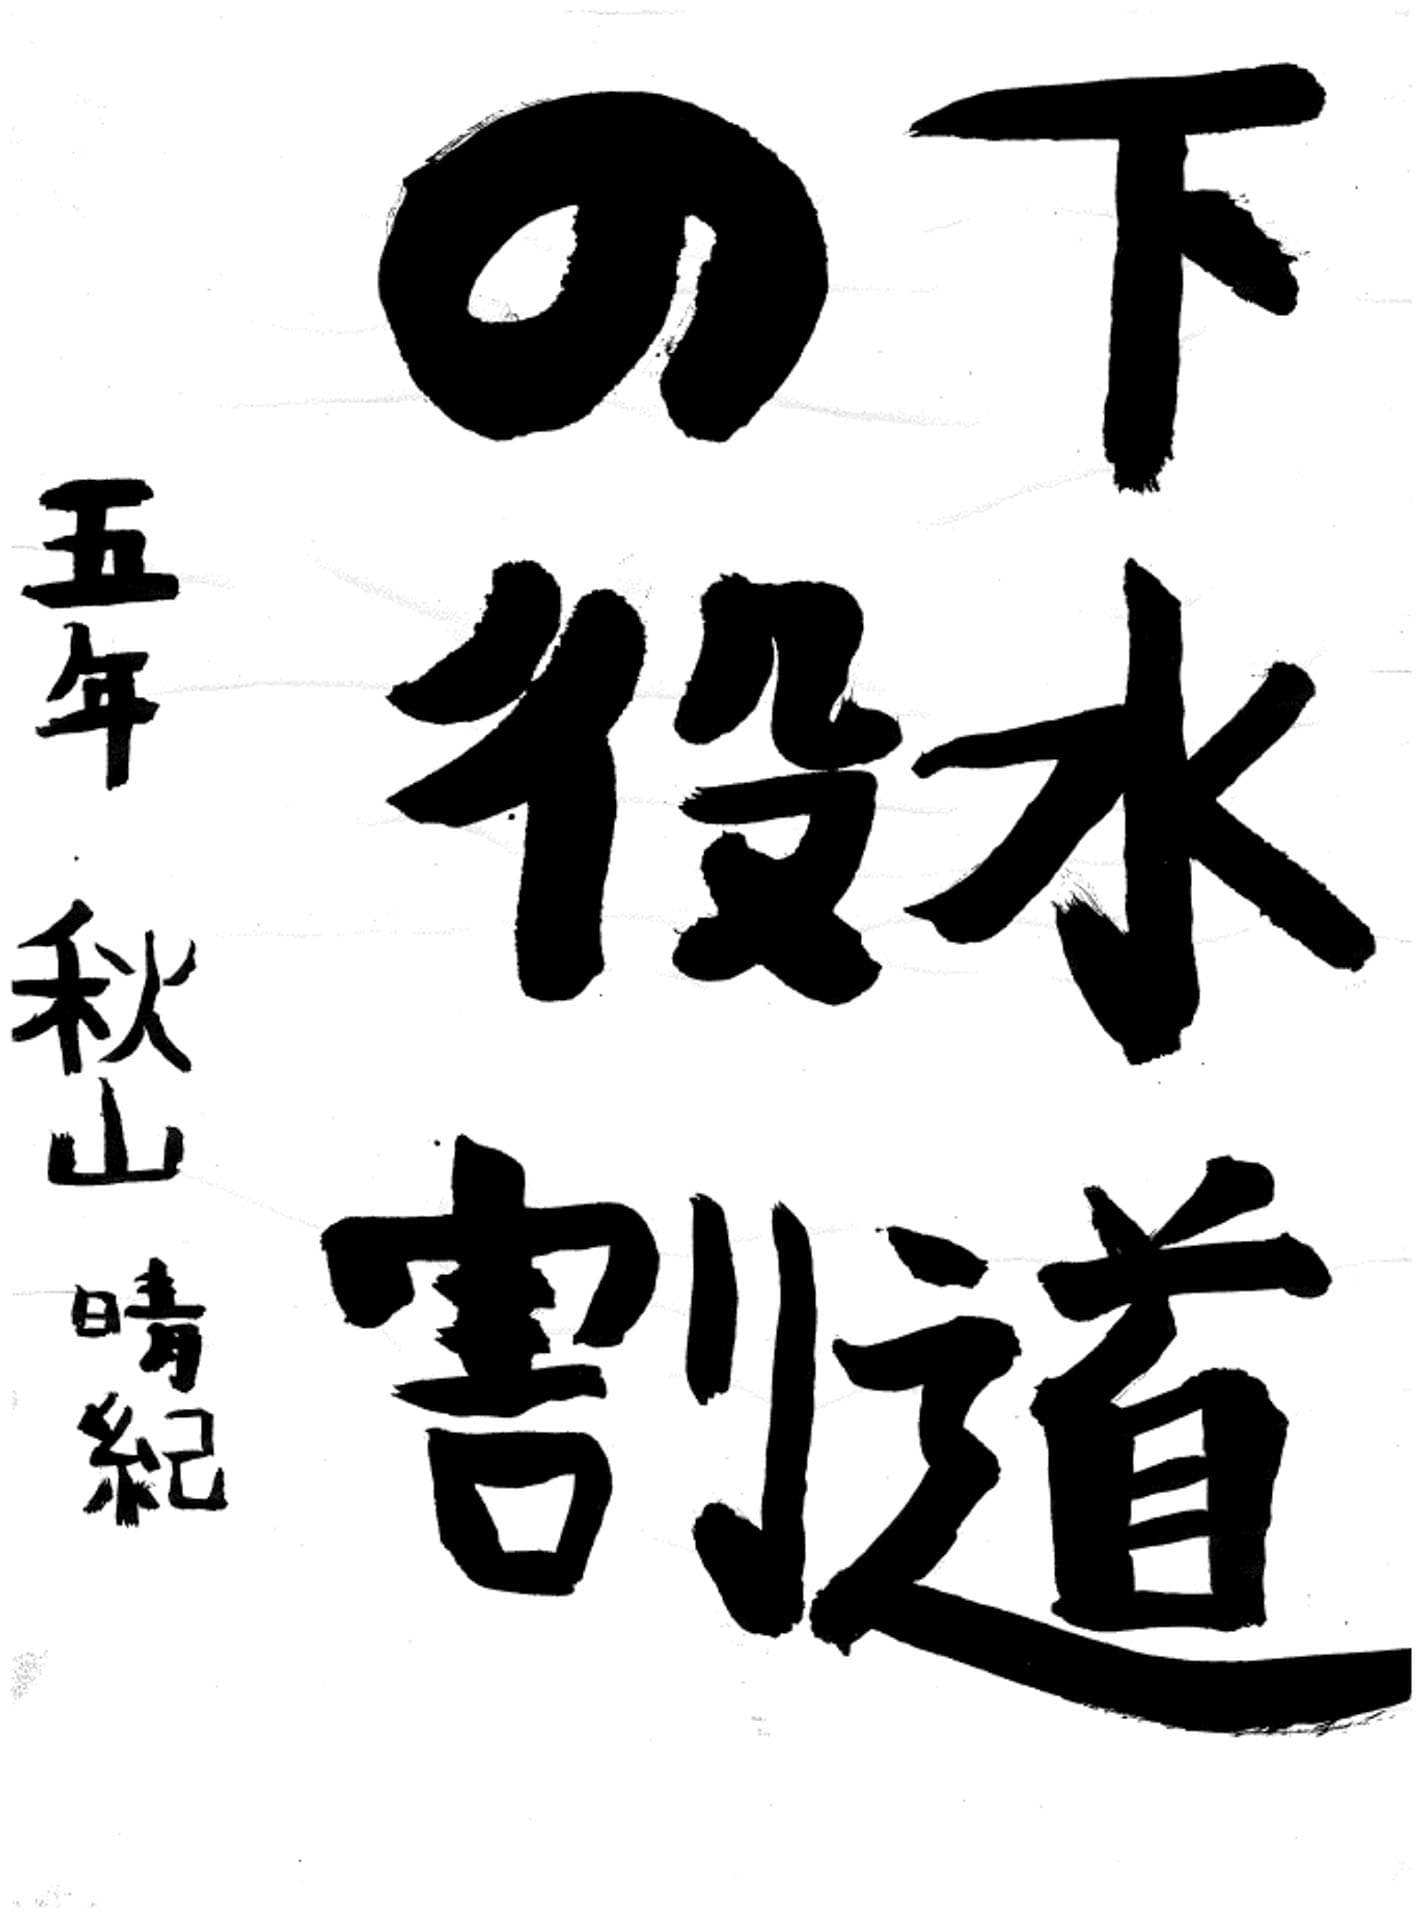 下水道
の役割
五年 秋山 晴紀